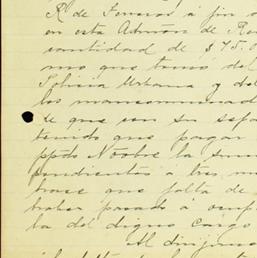 R. de Fomento á fin
en esta Admon de Ren
cantidad de $ 75.0
mo que tomó del
Policía Urbana y de
los mancomunad
te que con su espo
tenido que pagar
ppdo Novbre la sum
pondientes á tres m
brase una falta de
haber pasado á ocup
la del digno cargo
Al dirigirme